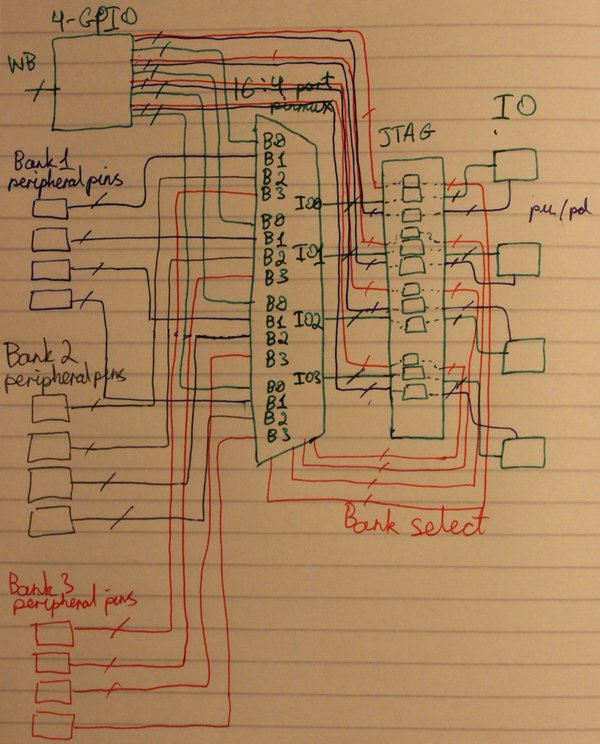 4-GPIO
WB
16:4 port
pinmux
JTAG
IO
pu/pd
Bank 1
peripheral pins
B0
B1
B2
B3
IO0
B0
B1
B2
B3
IO1
B0
B1
B2
B3
IO2
B0
B1
B2
B3
IO3
Bank 2
peripheral pins
Bank select
Bank 3
peripheral pins